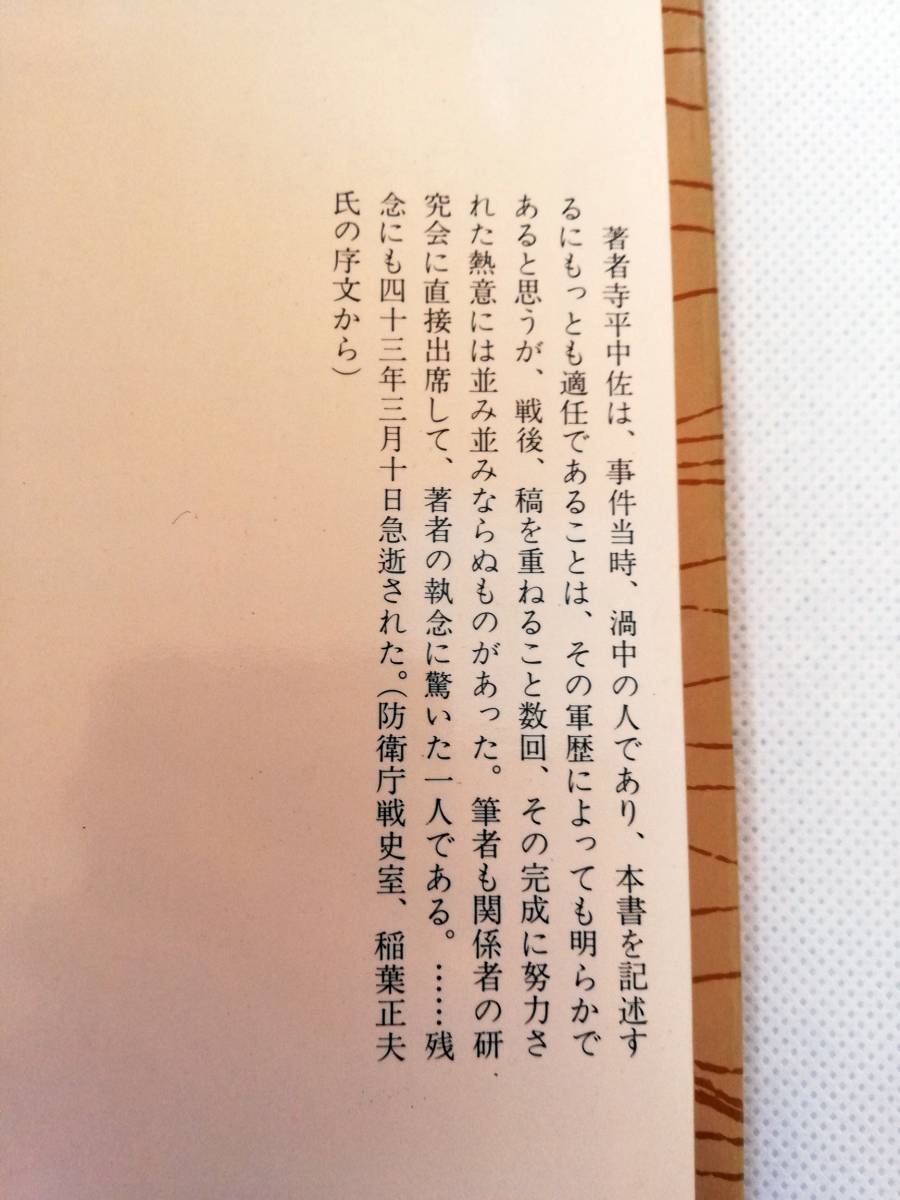 著者寺平中佐は、事件当時、渦中の人であり、本書を記述す
るにもっとも適任であることは、その軍歴によっても明らかで
あると思うが、戦後、稿を重ねること数回、その完成に努力さ
れた熱意には並み並みならぬものがあった。筆者も関係者の研
究会に直接出席して、著者の執念に驚いた一人である。……残
念にも四十三年三月十日急逝された。(防衛庁戦史室、稲葉正夫
氏の序文から)